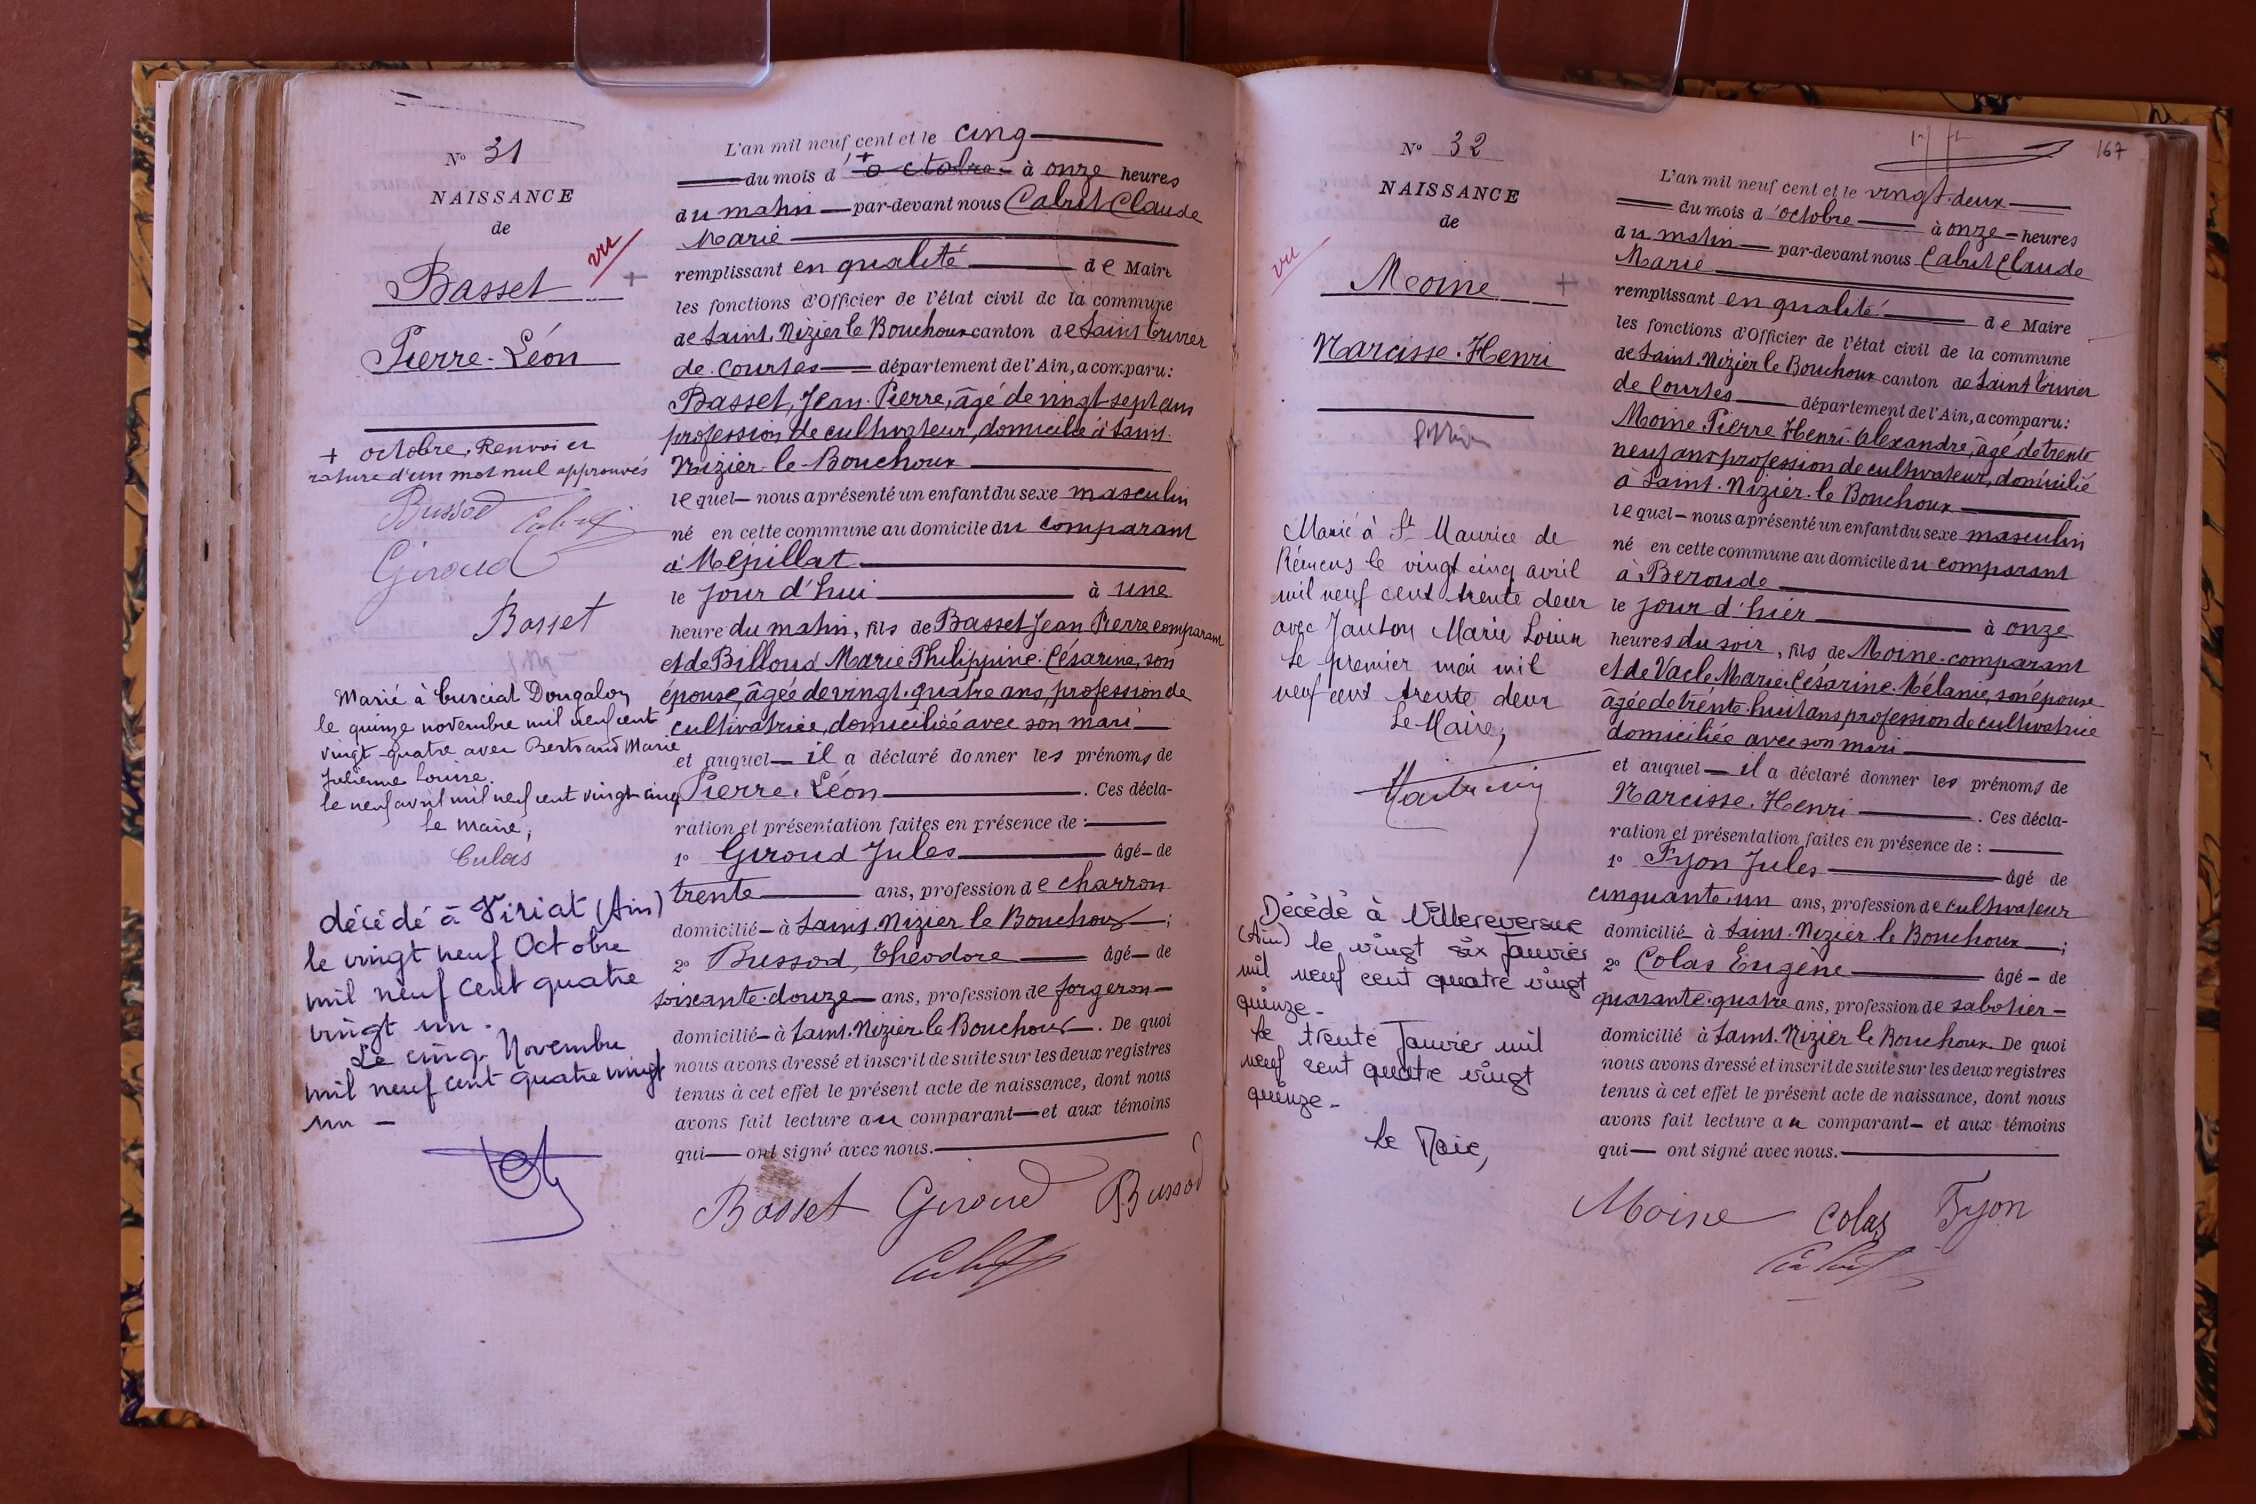 N° 31
NAISSANCE
de
vu
Basset +
Pierre-Léon
+ octobre. Renvoi et
rature d'un mot nul approuvés
Bussod
Giroud
Basset
Marié à
le quinze novembre mil neuf cent
vingt-quatre avec Bertrand Marie
Julienne Louise.
le neuf avril mil neuf cent vingt cinq
Le Maire,
décédé à Viriat (Ain)
le vingt neuf Octobre
mil neuf cent quatre
vingt un.
Le cinq Novembre
mil neuf cent quatre vingt
un —
L'an mil neuf cent et le cinq
du mois d' + octobre à onze heures
du matin par-devant nous Cabut Claude
Marie
remplissant en qualité de Maire
les fonctions d'Officier de l'état civil de la commune
de Saint-Nizier le Bouchoux canton de Saint Trivier
de Courtes département de l'Ain, a comparu:
Basset, Jean-Pierre, âgé de vingt-sept ans
profession de cultivateur, domicilié à Saint-
Nizier-le-Bouchoux
lequel nous a présenté un enfant du sexe masculin
né en cette commune au domicile du comparant
à Mépillat
le jour d'hui à une
heure du matin, fils de Basset Jean Pierre comparant
et de Billoud Marie Philippine Césarine, son
épouse, âgée de vingt-quatre ans, profession de
cultivatrice, domiciliée avec son mari
et auquel il a déclaré donner les prénoms de
Pierre. Léon . Ces décla-
ration et présentation faites en présence de :
1° Giroud Jules âgé de
trente ans, profession de charron
domicilié à Saint-Nizier le Bouchoux ;
2° Bussod, Théodore âgé de
soixante-douze ans, profession de forgeron
domicilié à Saint-Nizier le Bouchoux. De quoi
nous avons dressé et inscrit de suite sur les deux registres
tenus à cet effet le présent acte de naissance, dont nous
avons fait lecture au comparant et aux témoins
qui ont signé avec nous.
Basset Giroud Bussod
N° 32
NAISSANCE
de
vu
Moine +
Narcisse-Henri
Marié à St Maurice de
Rémens le vingt cinq avril
mil neuf cent trente deux
avec Janton Marie Louise
Le premier mai mil
neuf cent trente deux
Le Maire,
Décédé à Villereversure
(Ain) le vingt six Janvier
mil neuf cent quatre vingt
quinze -
Le trente Janvier mil
neuf cent quatre vingt
quinze -
Le Maire,
167
L'an mil neuf cent et le vingt-deux
du mois d'octobre à onze heures
du matin par-devant nous Cabut Claude
Marie
remplissant en qualité de Maire
les fonctions d'Officier de l'état civil de la commune
de Saint-Nizier le Bouchoux canton de Saint Trivier
de Courtes département de l'Ain, a comparu:
Moine Pierre Henri Alexandre, âgé de trente
neuf ans profession de cultivateur, domicilié
à Saint-Nizier-le Bouchoux
lequel nous a présenté un enfant du sexe masculin
né en cette commune au domicile du comparant
à Beroude
le jour d'hier à onze
heures du soir, fils de Moine comparant
et de Vacle Marie Césarine Mélanie, son épouse
âgée de trente-huit ans profession de cultivatrice
domiciliée avec son mari
et auquel il a déclaré donner les prénoms de
Narcisse. Henri . Ces décla-
ration et présentation faites en présence de :
1° Fyon Jules âgé de
cinquante-un ans, profession de cultivateur
domicilié à Saint-Nizier le Bouchoux ;
2° Colas Eugène âgé de
quarante-quatre ans, profession de sabotier
domicilié à Saint-Nizier le Bouchoux. De quoi
nous avons dressé et inscrit de suite sur les deux registres
tenus à cet effet le présent acte de naissance, dont nous
avons fait lecture au comparant et aux témoins
qui ont signé avec nous.
Moine Colas Fyon